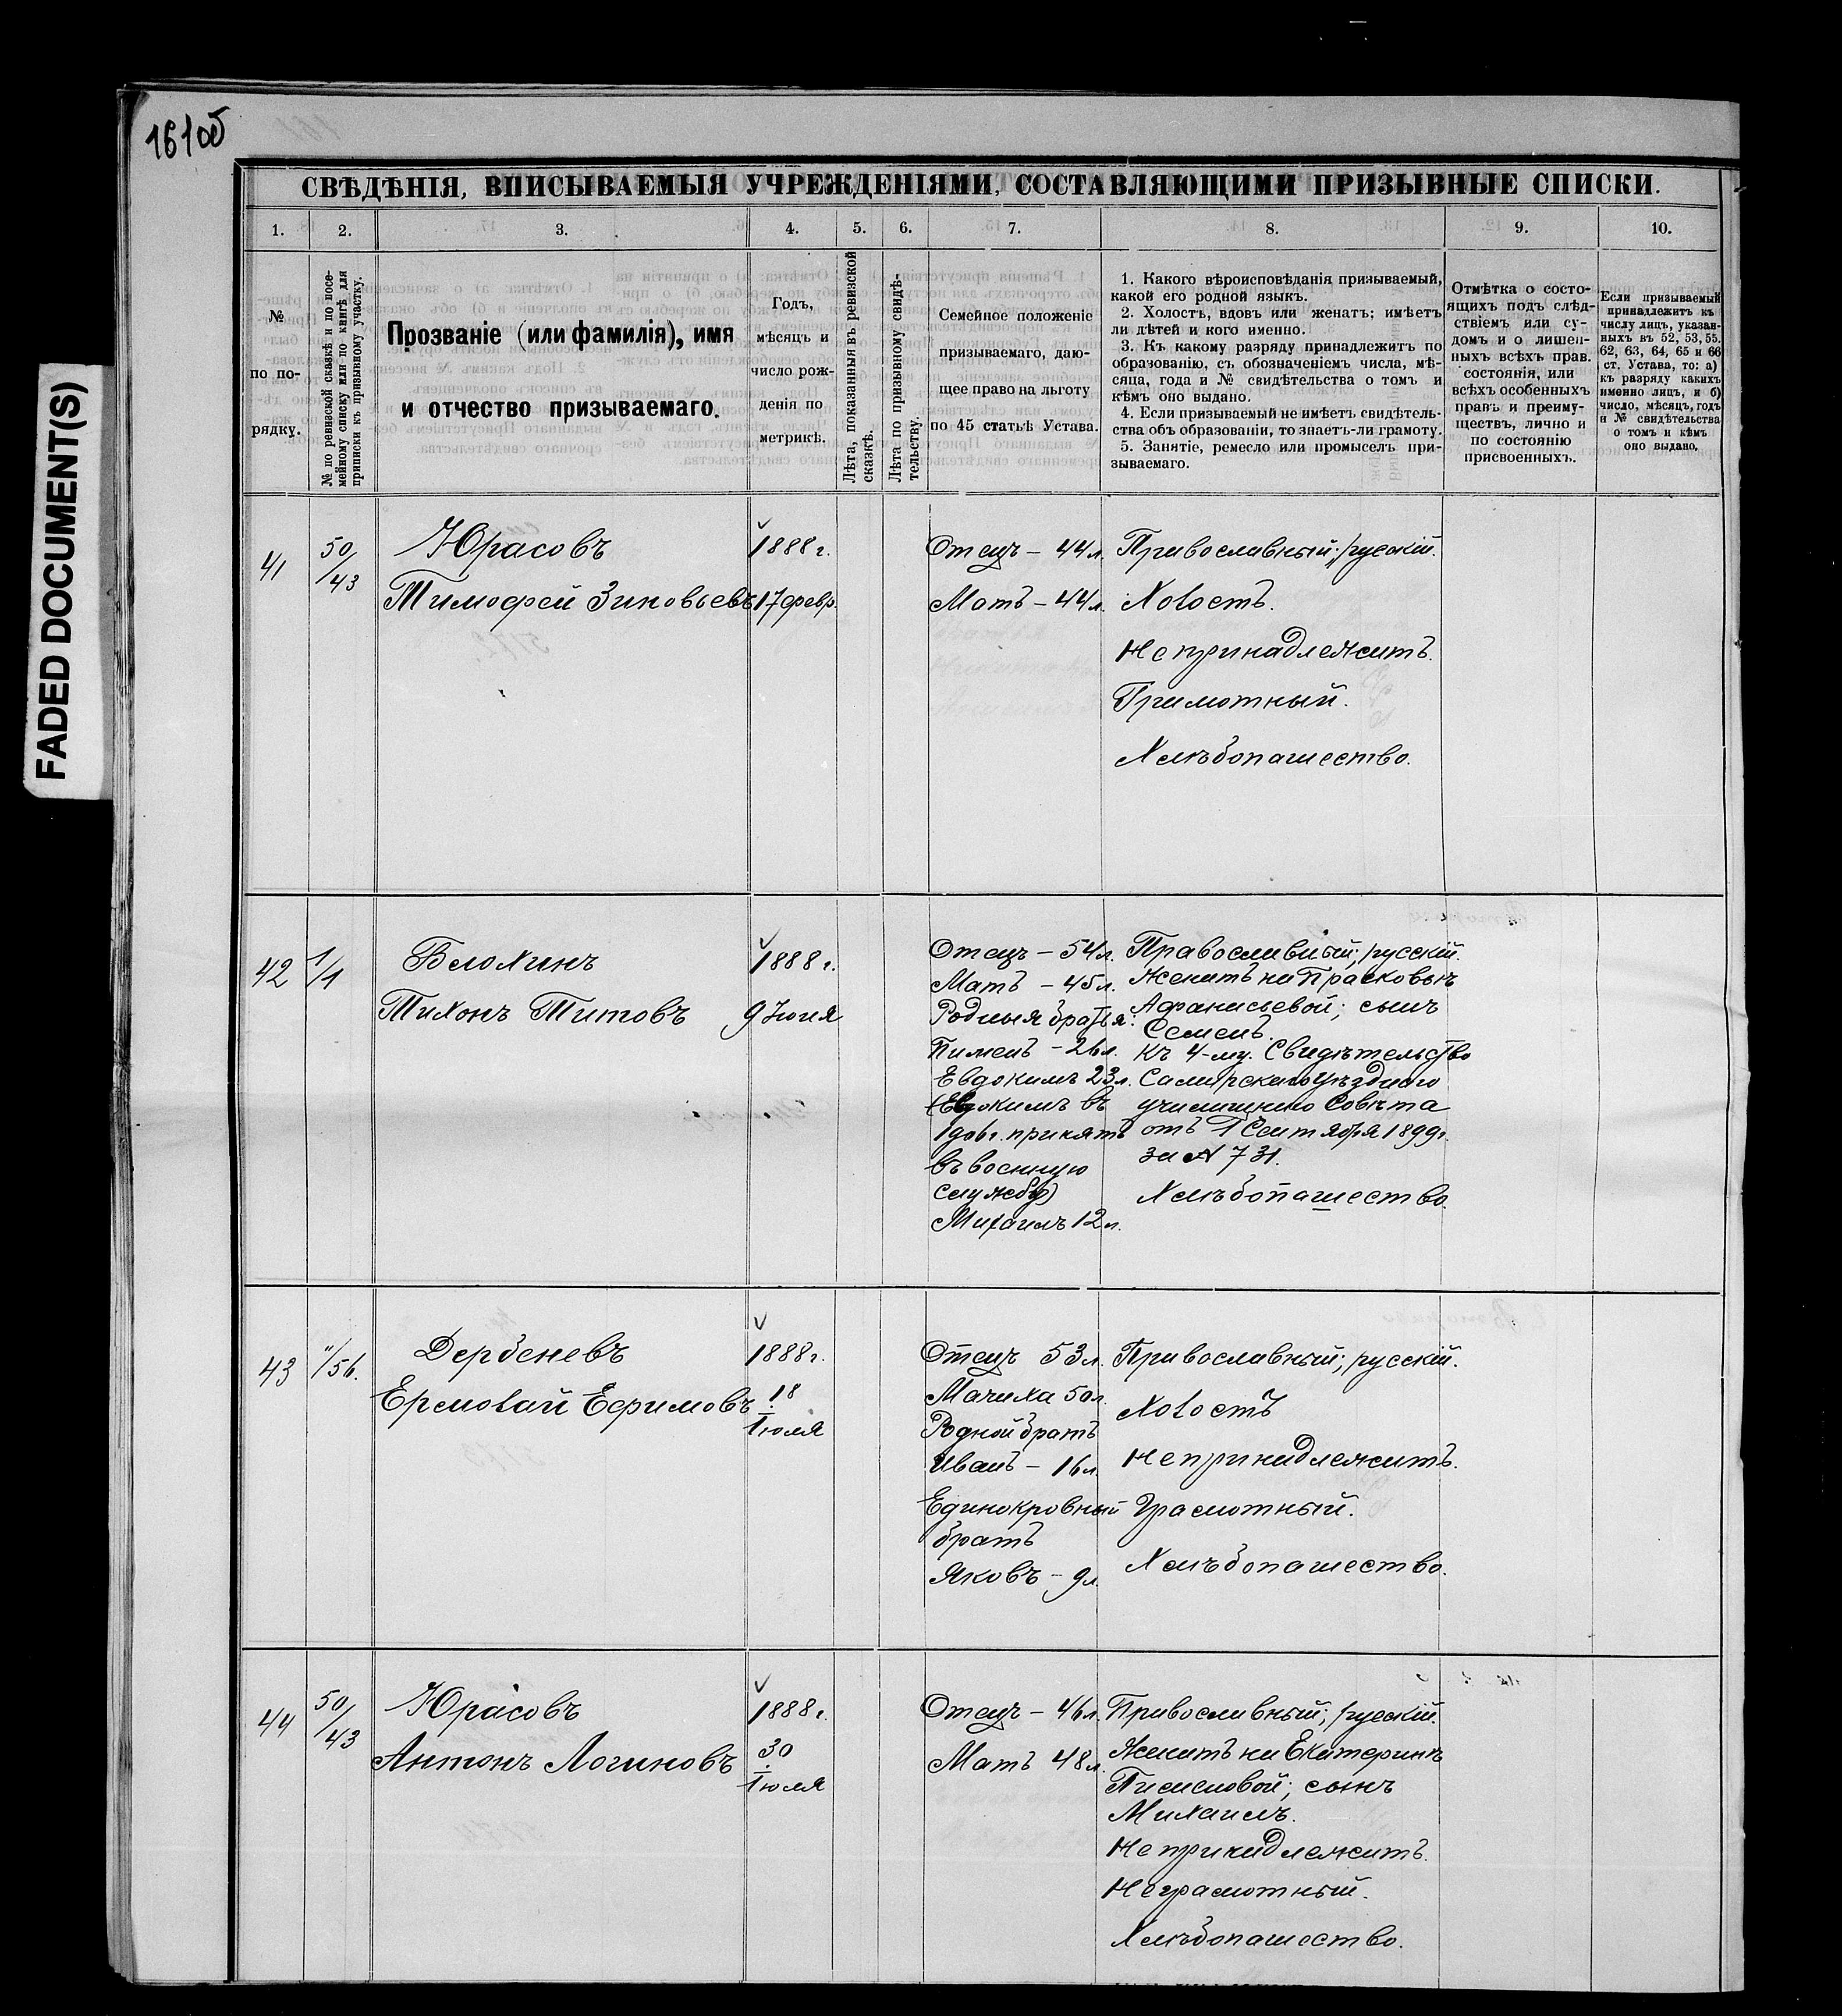 161об
FADED DOCUMENT(S)
СВѢДѢНІЯ, ВПИСЫВАЕМЫЯ УЧРЕЖДЕНІЯМИ, СОСТАВЛЯЮЩИМИ ПРИЗЫВНЫЕ СПИСКИ.
1. 2. 3. 4. 5. 6. 7. 8. 9. 10.
№
по по-
рядку.
№ по ревизской сказкѣ и по посе-
мейному списку или по книгѣ для
приписки къ призывному участку.
Прозваніе (или фамилія), имя
и отчество призываемаго.
Годъ,
мѣсяцъ и
число рож-
денія по
метрикѣ.
Лѣта, показанныя въ ревизской
сказкѣ.
Лѣта по призывному свидѣ-
тельству.
Семейное положеніе
призываемаго, даю-
щее право на льготу
по 45 статьѣ Устава.
1. Какого вѣроисповѣданія призываемый,
какой его родной языкъ.
2. Холостъ, вдовъ или женатъ; имѣетъ
ли дѣтей и кого именно.
3. Къ какому разряду принадлежитъ по
образованію, съ обозначеніемъ числа, мѣ-
сяца, года и № свидѣтельства о томъ и
кѣмъ оно выдано.
4. Если призываемый не имѣетъ свидѣтель-
ства объ образованіи, то знаетъ-ли грамоту.
5. Занятіе, ремесло или промыселъ при-
зываемаго.
Отмѣтка о состо-
ящихъ подъ слѣд-
ствіемъ или су-
домъ и о лишен-
ныхъ всѣхъ прав.
состоянія, или
всѣхъ особенныхъ
правъ и преиму-
ществъ, лично и
по состоянію
присвоенныхъ.
Если призываемый
принадлежитъ къ
числу лицъ, указан-
ныхъ въ 52, 53, 55.
62, 63, 64, 65 и 66
ст. Устава, то: а)
къ разряду какихъ
именно лицъ, и б)
число, мѣсяцъ, годъ
и № свидѣтельства
о томъ и кѣмъ
оно выдано.
41
50/43
Юрасовъ
Тимофей Зиновьевъ
1888 г.
17 февр.
Отецъ - 44 л.
Мать - 44 л.
Православный; русскій.
Холостъ.
Не принадлежитъ.
Грамотный.
Хлѣбопашество.
42
1/1
Блохинъ
Тихонъ Титовъ
1888 г.
9 Іюня
Отецъ - 54 л.
Мать - 45 л.
Родныя братья:
Пименъ - 26 л.
Евдокимъ 23 л.
(Евдокимъ въ
190 г. принятъ
въ военную
службу)
Михаилъ 12 л.
Православный; русскій.
Женатъ на Прасковьѣ
Афанасьевой; сынъ
Семенъ.
Къ 4-му. Свидѣтельство
Самарскаго уѣзднаго
училищнаго Совѣта
отъ 1 Сентября 1899 г.
за № 731.
Хлѣбопашество.
43
11/56.
Дербеневъ
Ермолай Ефимовъ
1888 г.
18
Іюля
Отецъ 53 л.
Мачиха 50 л.
Родной братъ
Иванъ - 16 л.
Единокровный
братъ
Яковъ - 9 л.
Православный; русскій.
Холостъ
Не принадлежитъ.
Грамотный.
Хлѣбопашество.
44
50/43
Юрасовъ
Антонъ Логиновъ
1888 г.
30
Іюля
Отецъ - 46 л.
Мать 48 л.
Православный; русскій.
Женатъ на Екатеринѣ
Пименовой; сынъ
Михаилъ.
Не принадлежитъ.
Неграмотный.
Хлѣбопашество.